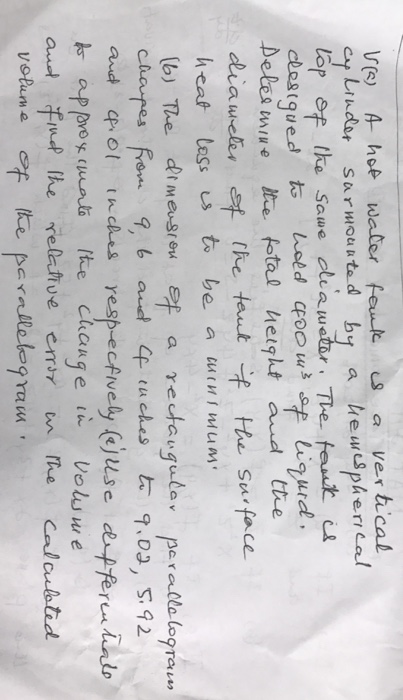 V(a) A hot water tank is a vertical
cylinder surmounted by a hemispherical
top of the same diameter. The tank is
designed to hold 400m³ of liquid.
Determine the total height and the
diameter of the tank if the surface
heat loss is to be a minimum.
(b) The dimension of a rectangular parallelogram
changes from 9, 6 and 4 inches to 9.02, 5.92
and 4.01 inches respectively (a) Use differentials
to approximate the change in volume
and find the relative error in the calculated
volume of the parallelogram.